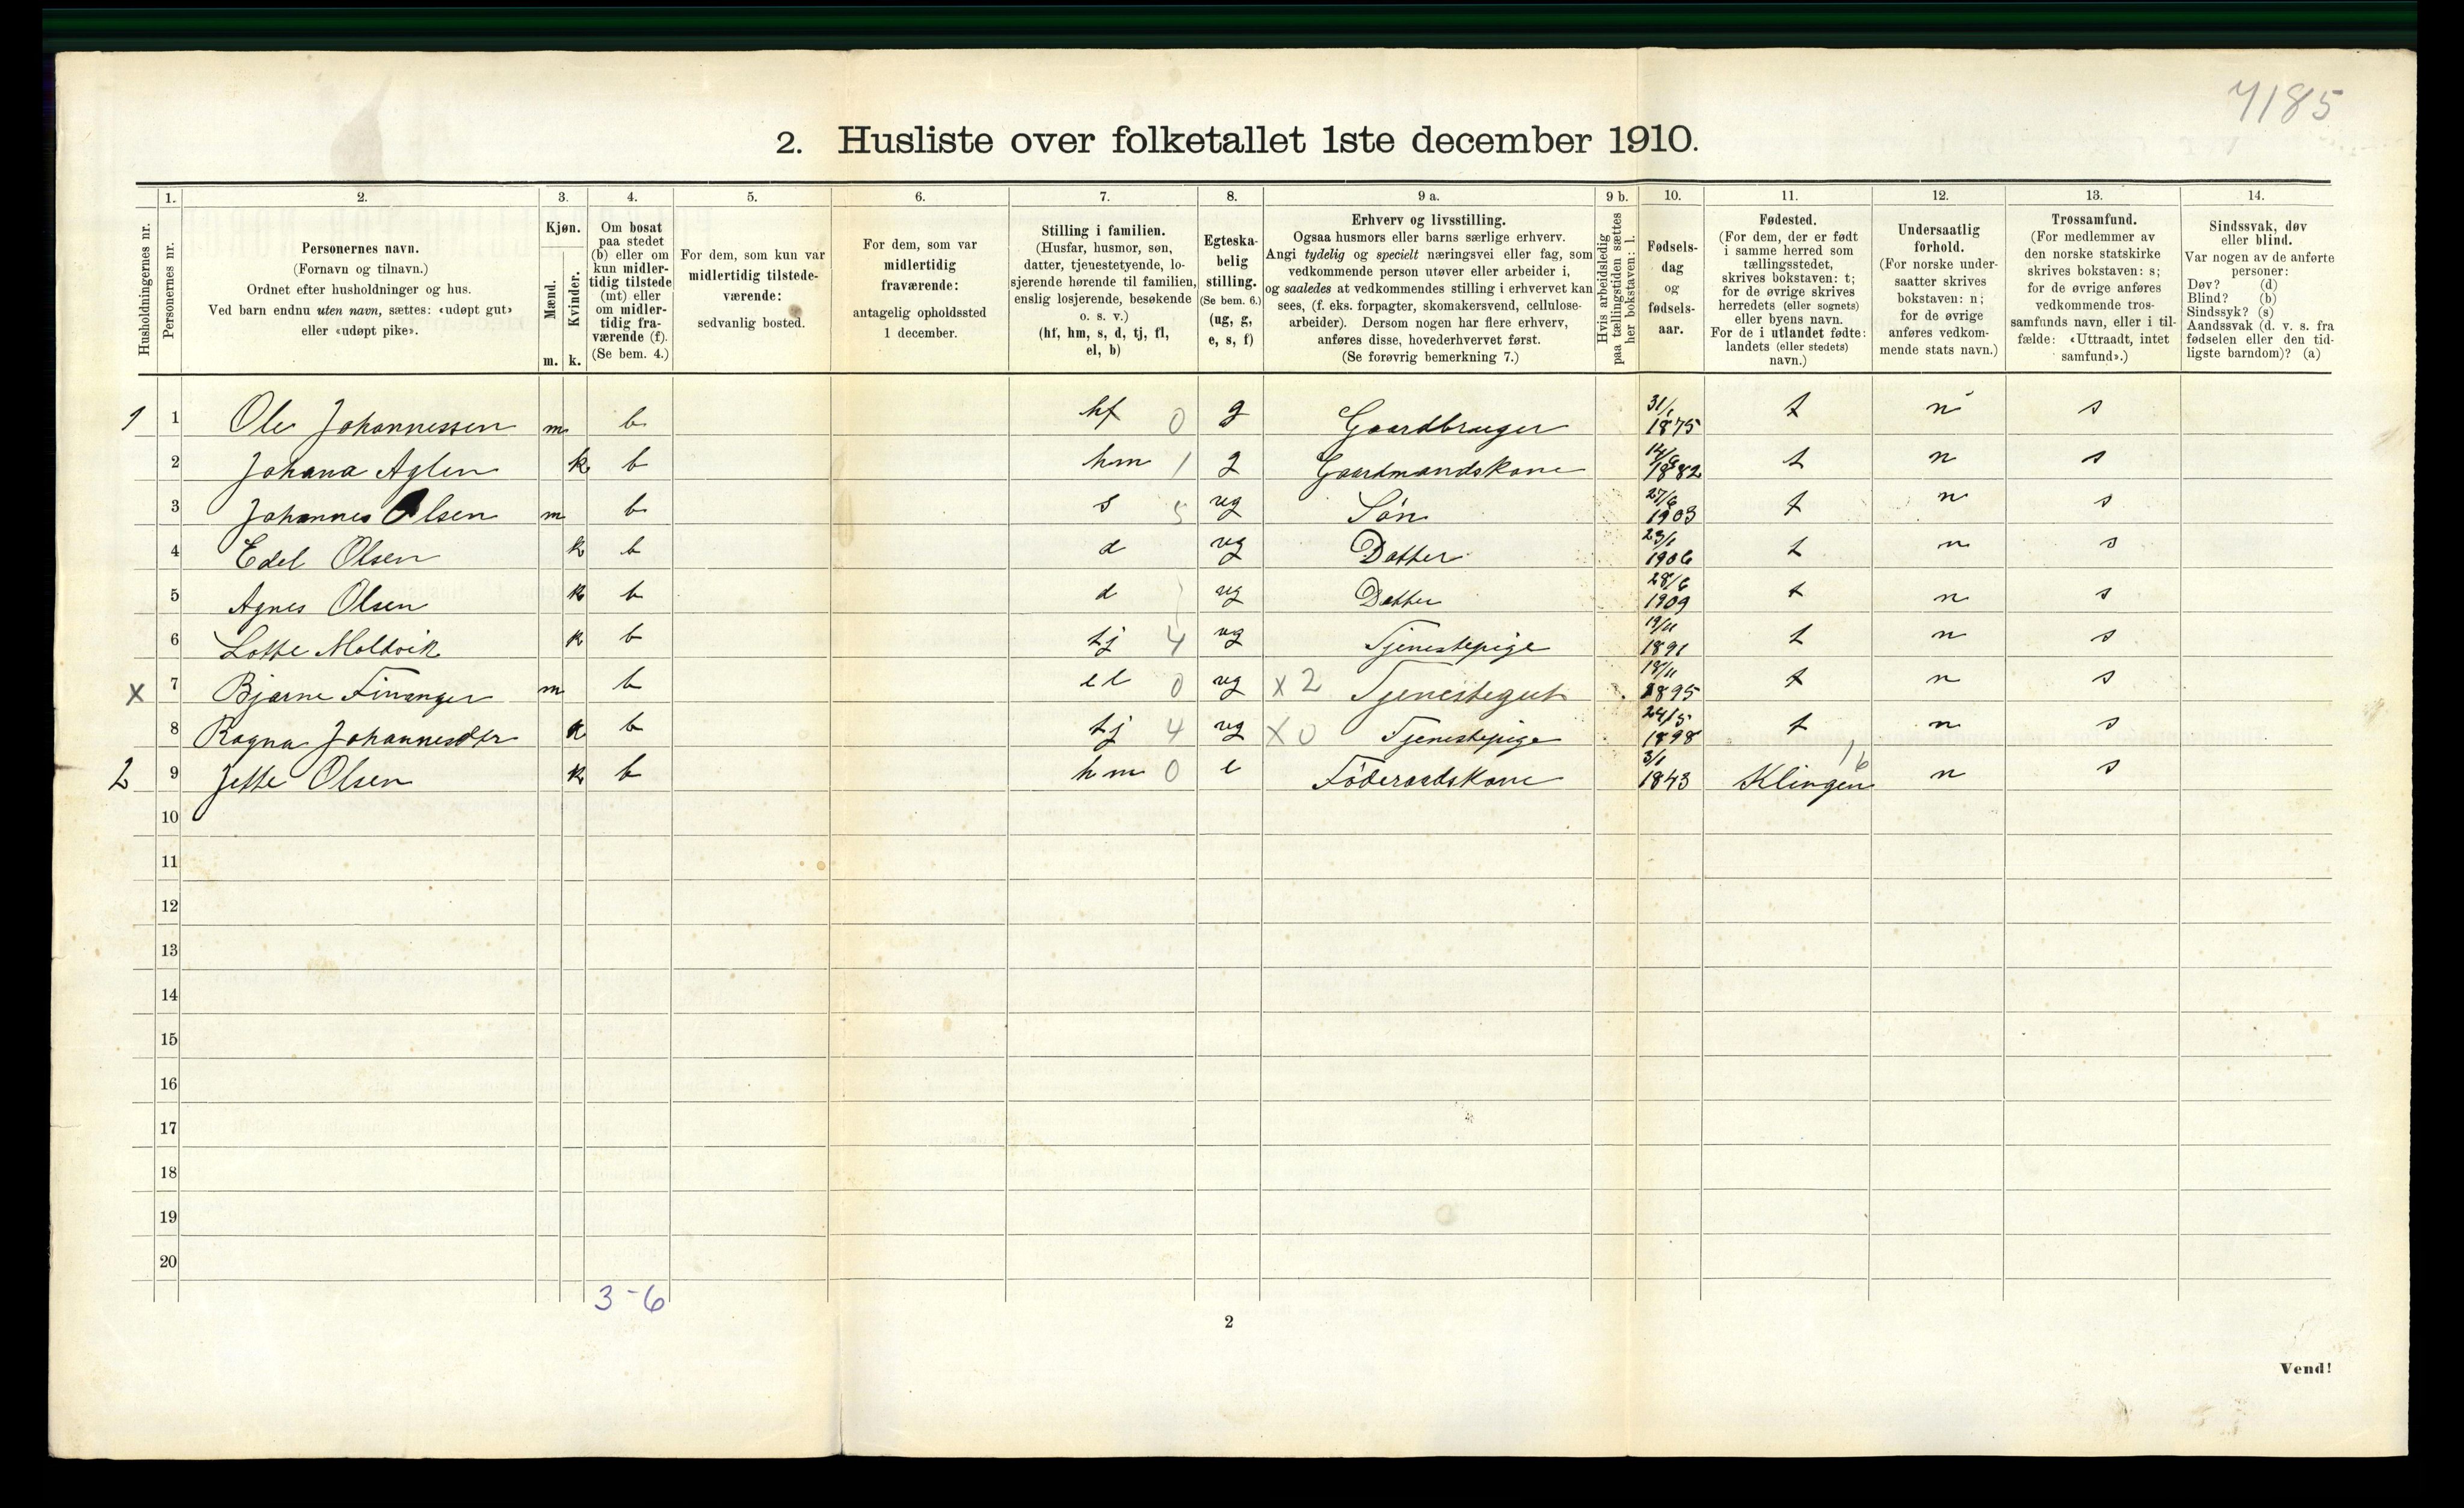 7185
2. Husliste over folketallet 1ste december 1910.
Husholdningernes nr.
1. Personernes nr.
2. Personernes navn.
(Fornavn og tilnavn.)
Ordnet efter husholdninger og hus.
Ved barn endnu uten navn, sættes: «udøpt gut»
eller «udøpt pike».
3. Kjøn.
Mænd. m.
Kvinder. k.
4. Om bosat
paa stedet
(b) eller om
kun midler-
tidig tilstede
(mt) eller
om midler-
tidig fra-
værende (f).
(Se bem. 4.)
5. For dem, som kun var
midlertidig tilstede-
værende:
sedvanlig bosted.
6. For dem, som var
midlertidig
fraværende:
antagelig opholdssted
1 december.
7. Stilling i familien.
(Husfar, husmor, søn,
datter, tjenestetyende, lo-
sjerende hørende til familien,
enslig losjerende, besøkende
o. s. v.)
(hf, hm, s, d, tj, fl,
el, b)
8. Egteska-
belig
stilling.
(Se bem. 6.)
(ug, g,
e, s, f)
9 a. Erhverv og livsstilling.
Ogsaa husmors eller barns særlige erhverv.
Angi tydelig og specielt næringsvei eller fag, som
vedkommende person utøver eller arbeider i,
og saaledes at vedkommendes stilling i erhvervet kan
sees, (f. eks. forpagter, skomakersvend, cellulose-
arbeider). Dersom nogen har flere erhverv,
anføres disse, hovederhvervet først.
(Se forøvrig bemerkning 7.)
9 b. Hvis arbeidsledig
paa tællingstiden sættes
her bokstaven: l.
10. Fødsels-
dag
og
fødsels-
aar.
11. Fødested.
(For dem, der er født
i samme herred som
tællingsstedet,
skrives bokstaven: t;
for de øvrige skrives
herredets (eller sognets)
eller byens navn.
For de i utlandet fødte:
landets (eller stedets)
navn.)
12. Undersaatlig
forhold.
(For norske under-
saatter skrives
bokstaven: n;
for de øvrige
anføres vedkom-
mende stats navn.)
13. Trossamfund.
(For medlemmer av
den norske statskirke
skrives bokstaven: s;
for de øvrige anføres
vedkommende tros-
samfunds navn, eller i til-
fælde: «Uttraadt, intet
samfund».)
14. Sindssvak, døv
eller blind.
Var nogen av de anførte
personer:
Døv? (d)
Blind? (b)
Sindssyk? (s)
Aandssvak (d. v. s. fra
fødselen eller den tid-
ligste barndom)? (a)
1 1 Ole Johannessen m b hf 0 g Gaardbruger 31/1 1875 t n s
2 Johana Aglen k b hm 1 g Gaardmandskone 1882 t n s
3 Johannes Olsen m b s 5 ug Sön 27/6 1903 t n s
4 Edel Olsen k b d ug Datter 23/1 1906 t n s
5 Agnes Olsen k b d ug Datter 28/6 1909 t n s
6 Lotte Moldvik k b tj 4 ug Tjenestepige 19/11 1891 t n s
x 7 Bjarne Finanger m b el 0 ug x 2 Tjenestegut 18/11 1895 t n s
8 Ragna Johannesdtr k b tj 4 ug x 0 Tjenestepige 24/5 1898 t n s
2 9 Jette Olsen k b hm 0 e Föderaadskone 3/1 1843 Klingen 16 n s
10
11
12
13
14
15
16
17
18
19
20
3-6
2
Vend!